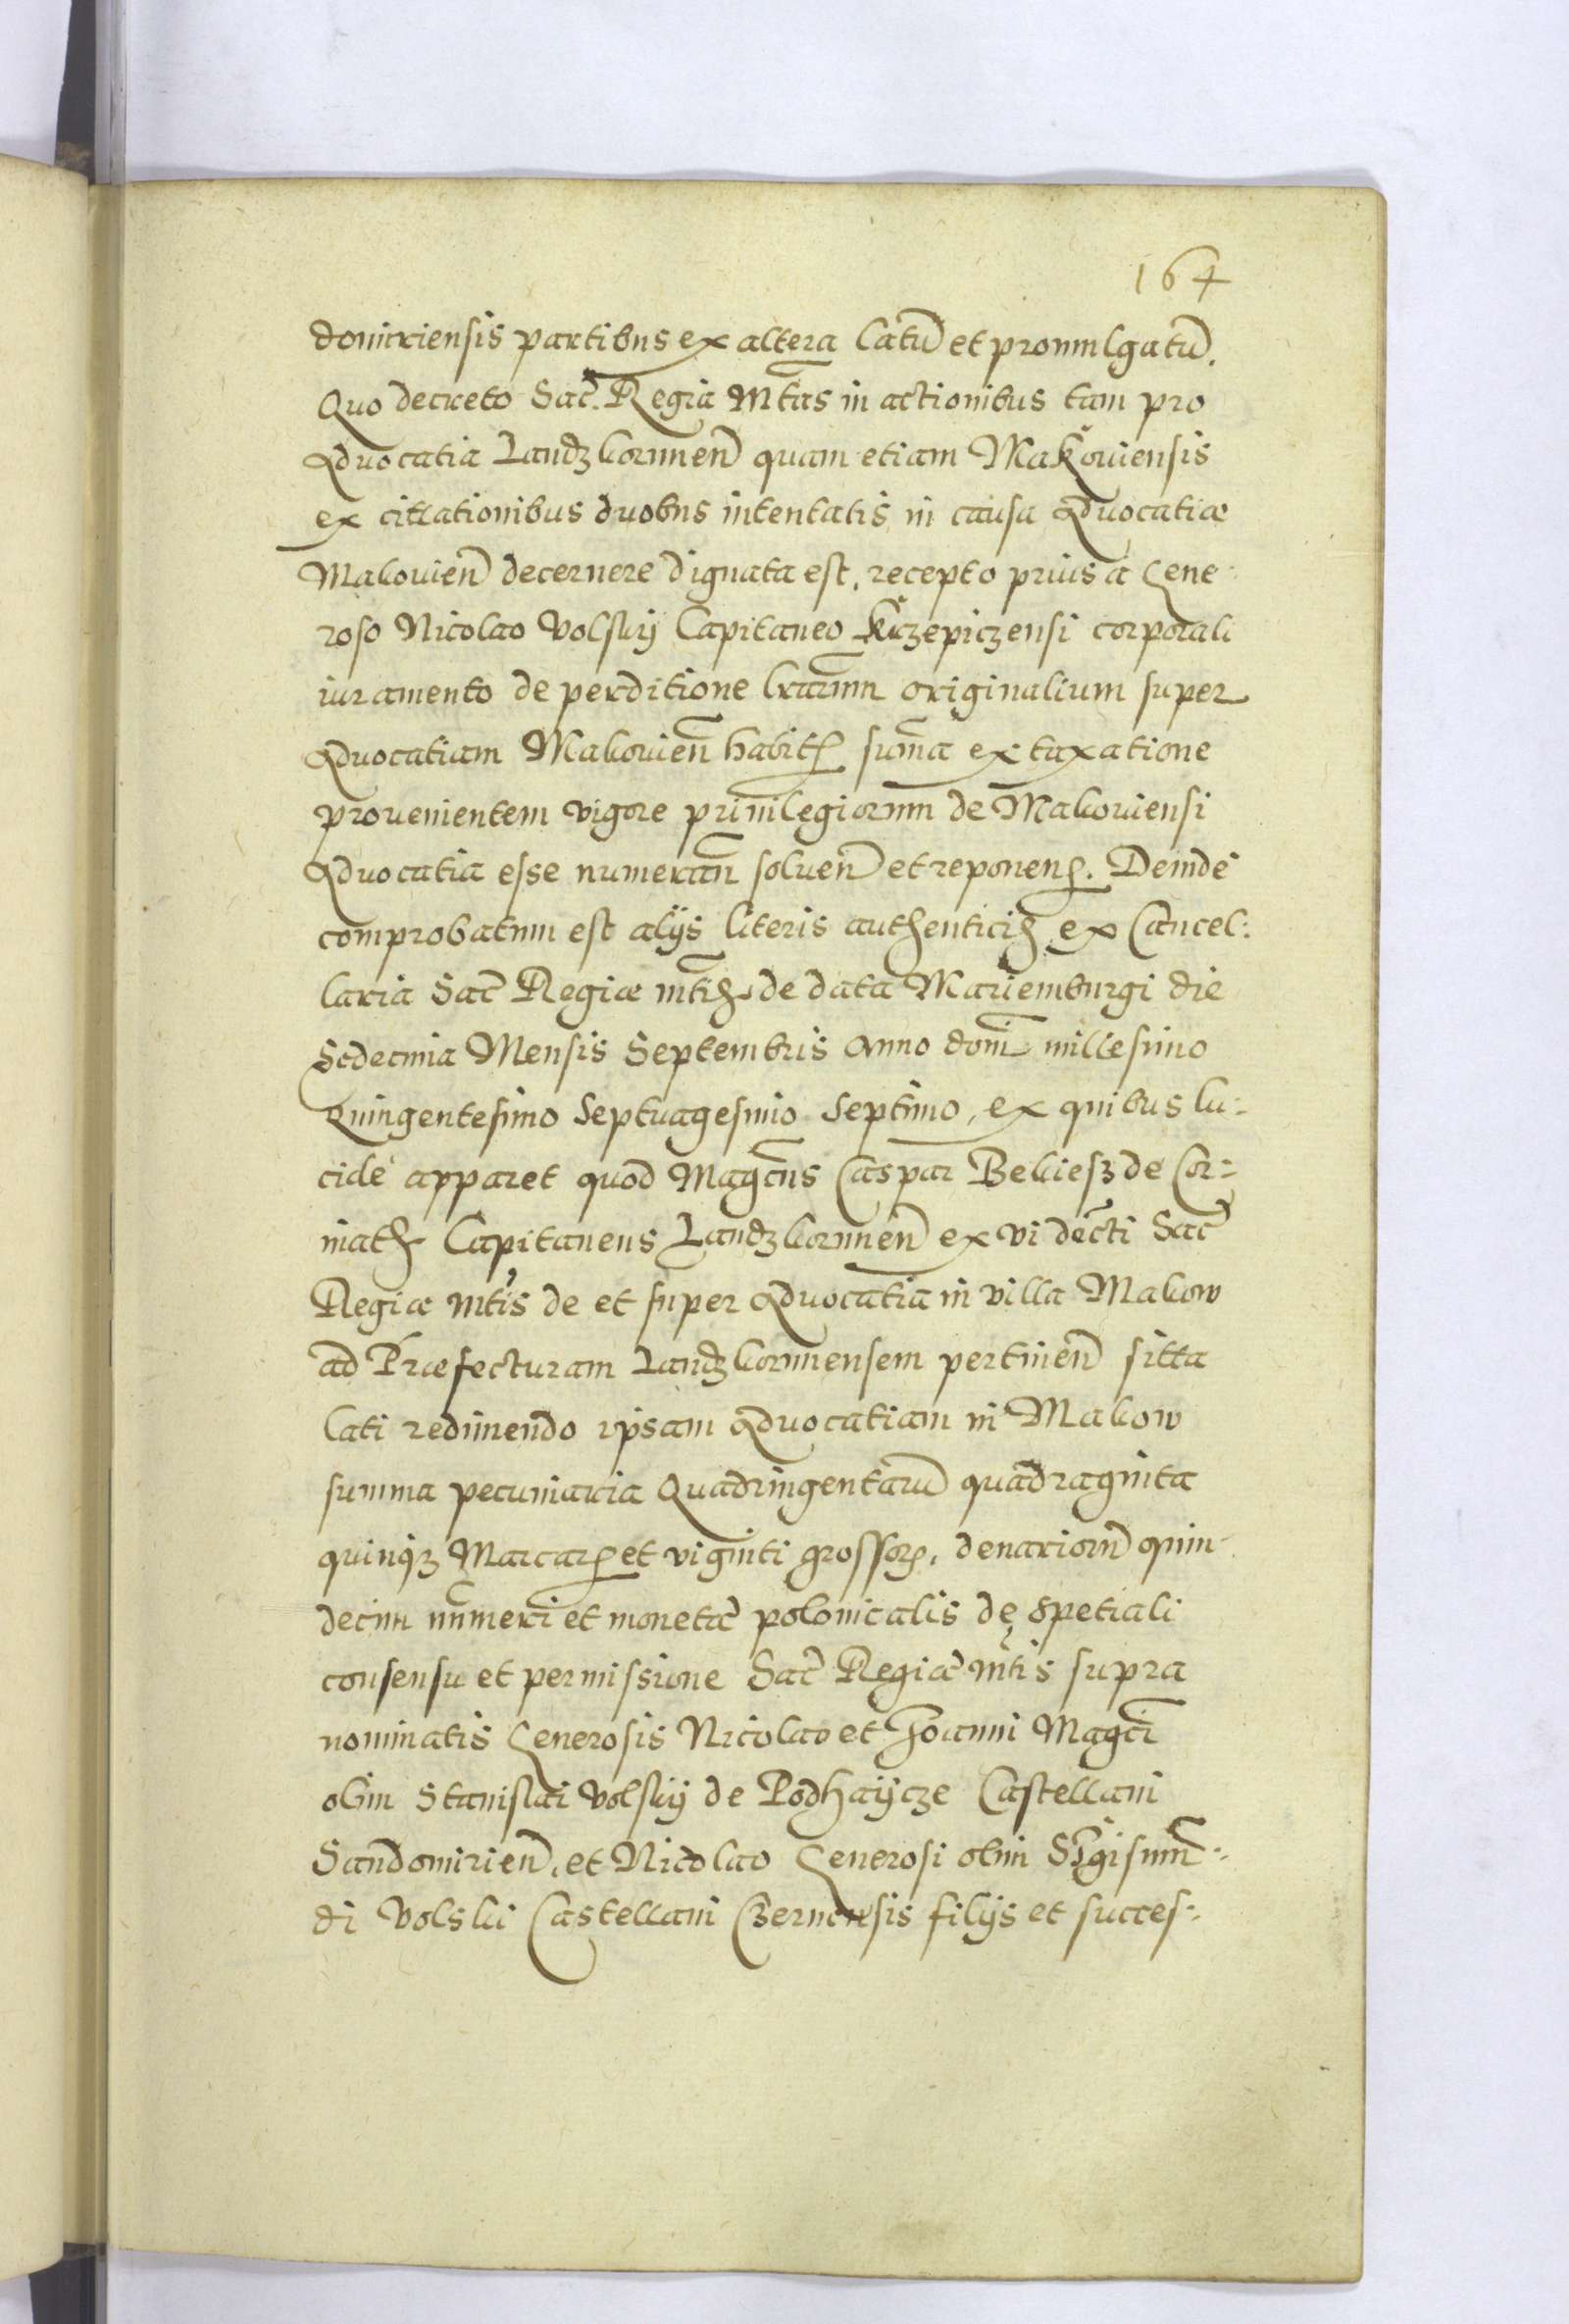 164
domiriensis partibus ex altera latũ et promulgatũ.
Quo decreto Sac̃. Regia Mt̃as in actionibus tam pro
Advocatia Landzkorunen̄ quam etiam Makoviensis
ex cittationibus duobus intentatis in causa Advocatiæ
Makovien̄ decernere dignata est, recepto prius a Gene-
roso Nicolao Volskÿ Capitaneo Krzepiczensi corporali
iuramento de perditione lr̃arum originalium super
Advocatiam Makovien̄ habitꝝ sum̃a ex taxatione
provenientem vigore privilegiorum de Makoviensi
Advocatia esse numeran̄ solven̄ et reponenꝝ. Deinde
comprobatum est alÿs literis authenticis ex Cancel:
laria Sac̃ Regiæ mt̃is de data Mariemburgi die
Sedecima Mensis Septembris Anno domĩ millesimo
Quingentesimo Septuagesimo Septimo, ex quibus lu:
cide apparet quod Magc̃us Caspar Bekiesz de Cor:
niath Capitaneus Landzkorunen̄ ex vi dec̃ti Sac̃
Regiæ mt̃is de et super Advocatia in villa Makow
ad Præfecturam Landzkorunensem pertinen̄ sitta
lati redimendo ipsam Advocatiam in Makow
summa pecuniaria Quadringentarũ quadraginta
quinqꝫ Marcarꝝ et viginti grossorꝝ, denariorũ quin-
decim numeri et monetæ polonicalis de spetiali
consensu et permissione Sac̃ Regiæ mt̃is supra
nominatis Generosis Nicolao et Joanni Magc̃i
olim Stanislai Volskÿ de Podhaÿcze Castellani
Sandomirien̄, et Nicolao Generosi olim Sigismun̄:
di Volski Castellani Czernensis filÿs et succes: